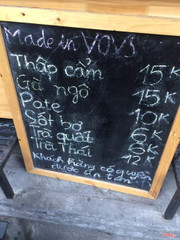 Made in VOVS
Thập cẩm 15K
Gà ngô 15K
Pate 10K
Sốt bơ 6K
Trà quất 6K
Trà Thái 12K
Khách hàng có quyền
được ăn tem